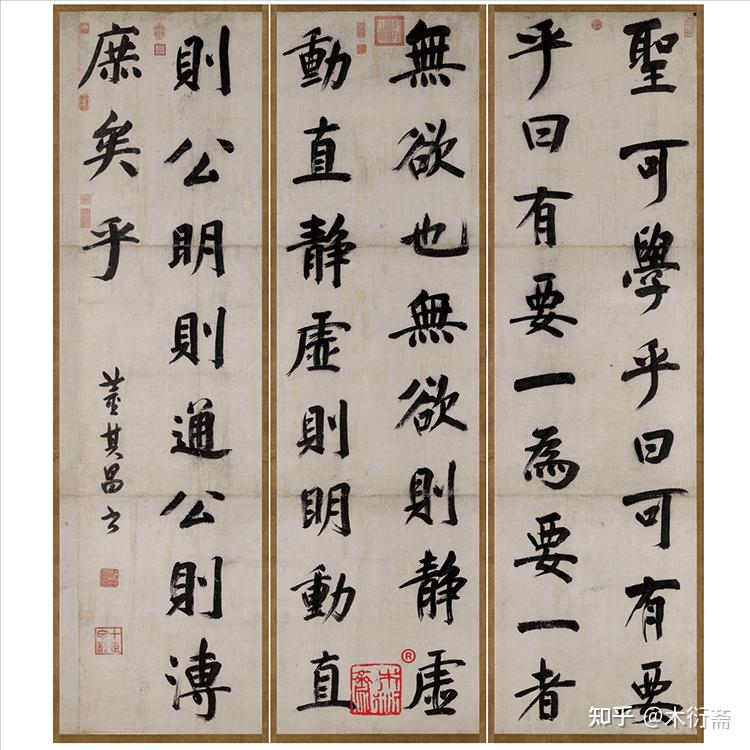 聖可學乎曰可有要
乎曰有要一為要一者
無欲也無欲則静虛
動直静虛則明動直
則公明則通公則溥
庶矣乎
董其昌书
知乎 @木衍斋